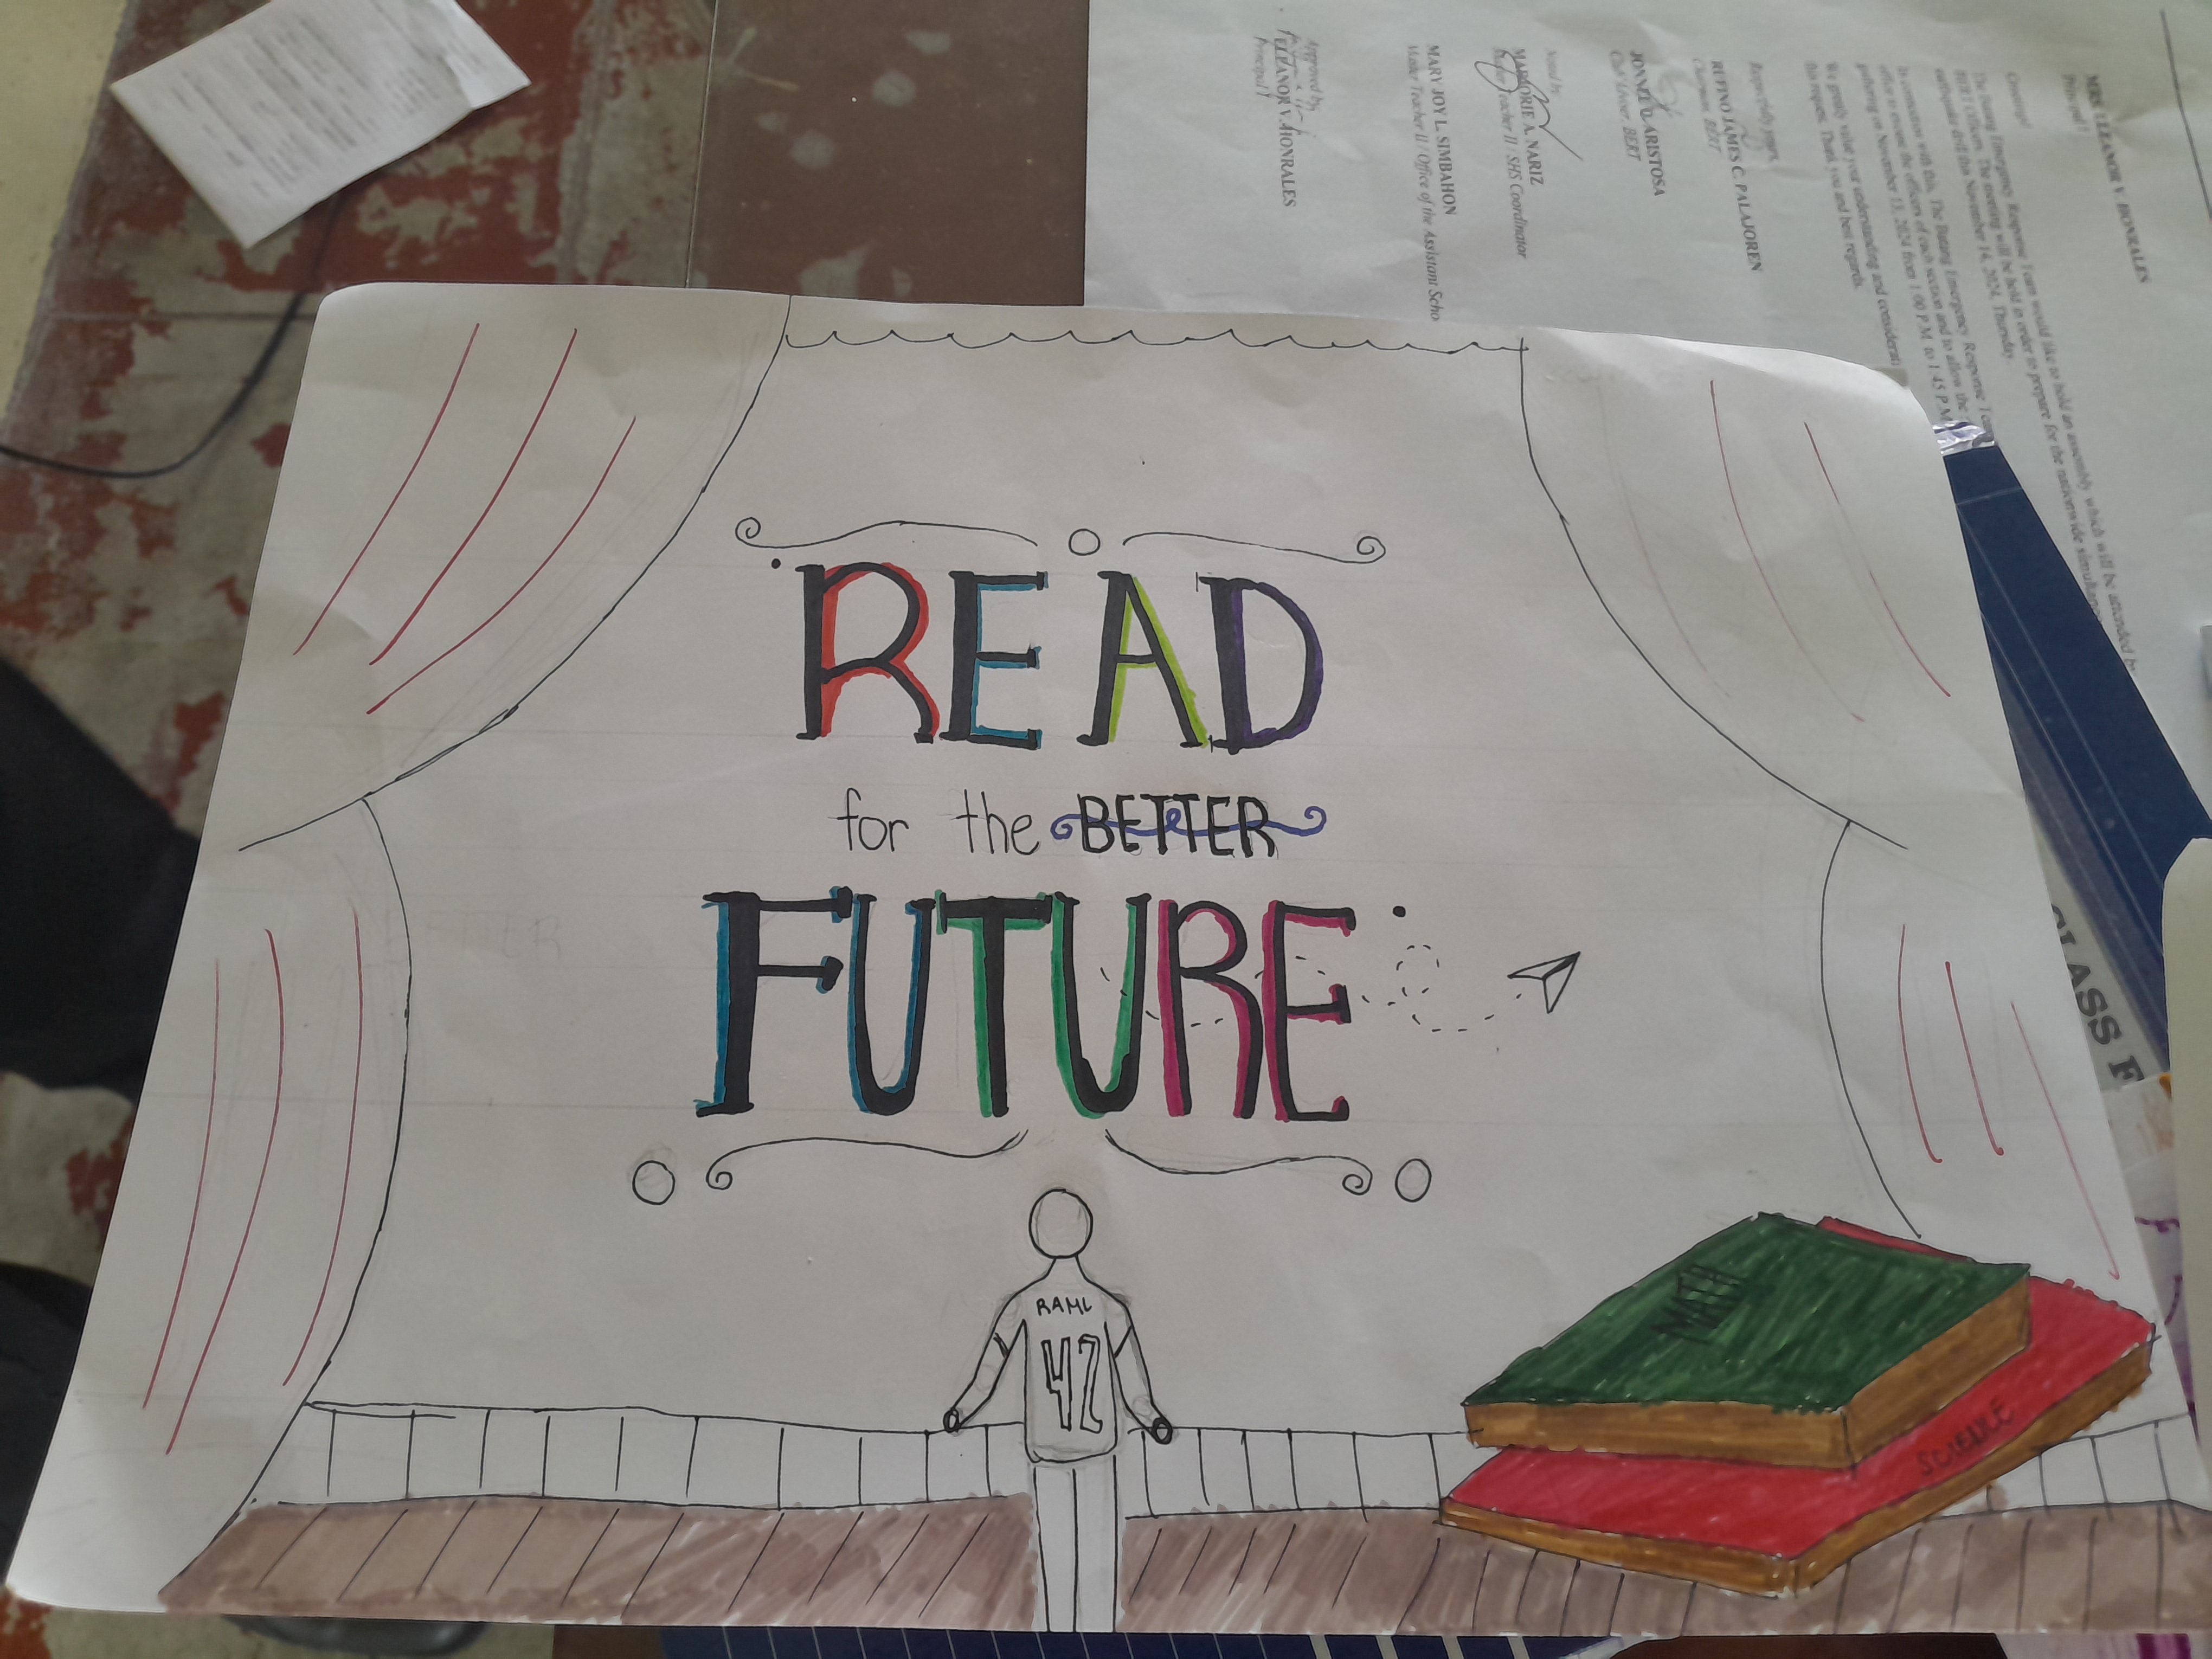 READ
for the BETTER
FUTURE
RAML
42
MATH
SCIENCE
MRS. ELEANOR V. HONRALES
Principal I
Greetings!
The Batang Emergency Response Team would like to hold an assembly which will be attended by
BERT Officers. The meeting will be held in order to prepare for the nationwide simultaneous
earthquake drill this November 14, 2024, Thursday.
In connection with this, The Batang Emergency Response
office to excuse the officers of each section and to allow the
gathering in November 13, 2024 from 1:00 P.M. to 1:45 P.M.
We greatly value your understanding and
this request. Thank you and best regards.
Respectfully yours,
RUFFINO JAMES C. PALAJOREN
Chairman, BERT
JONNEL D. ARISTOSA
Club Adviser, BERT
Noted by:
MARJORIE A. NARIZ
Teacher II / SHS Coordinator
MARY JOY L. SIMBAHON
Master Teacher II / Office of the Assistant Scho
Approved by:
ELEANOR V. HONRALES
Principal I
CLASS